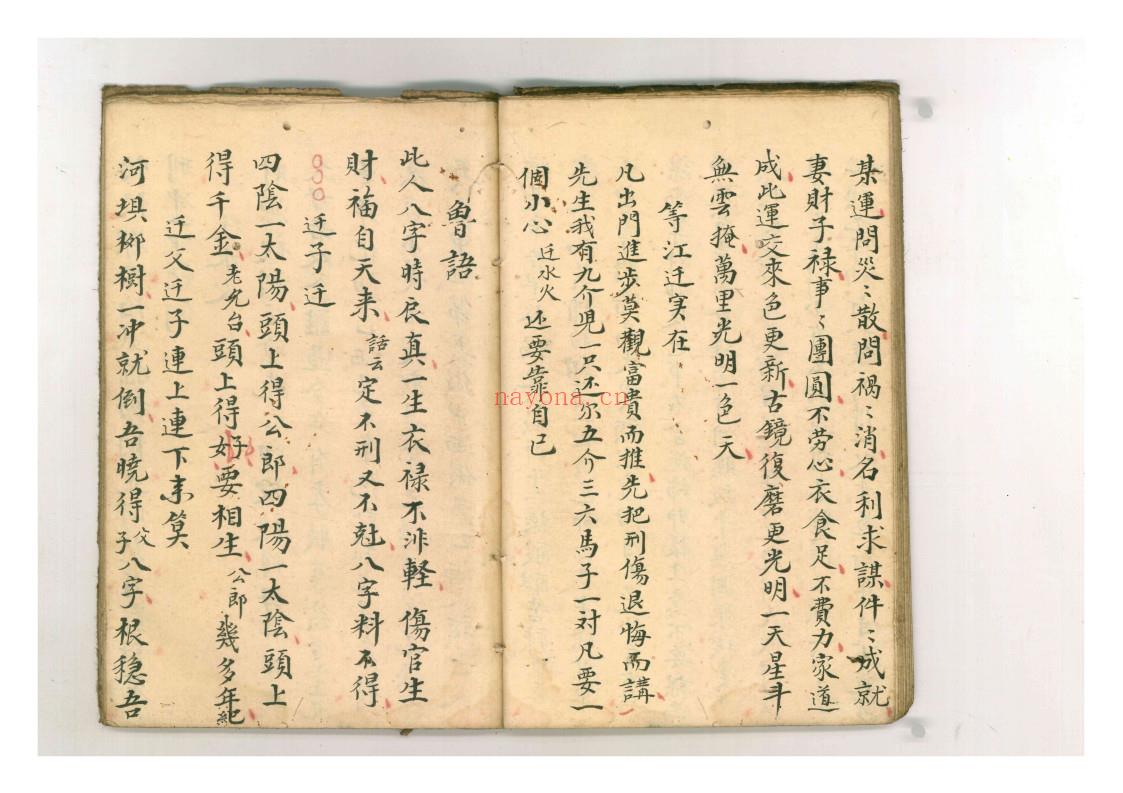 某運問災〻散問祸〻消名利求謀件〻成就
妻財子禄事〻團圓不劳心衣食足不費力家道
成此運交來色更新古鏡復磨更光明一天星斗
無雲掩萬里光明一色天
等江迁实在
凡出門進步莫觀富貴而推先把刑傷退悔而講
先生我有九介児一只还尔五介三六馬子一对凡要一
個小心迁水火还要靠自已
魯語
此人八字時良真一生衣禄不非軽傷官生
財福自天来話云定不刑又不尅八字料不得
迁子迁
四陰一太陽頭上得公郎四陽一太陰頭上
得千金老允台頭上得好子要相生公郎幾多年紀
迁父迁子連上連下来算
河埧柳樹一冲就倒吾曉得父子八字根穏吾
nayona.cn